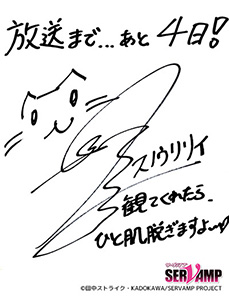 放送まで...あと4日!
スノウリリイ
観てくれたら、
ひと肌脱ぎますよ〜♡
サーヴァンプ
SERVAMP
©田中ストライク・KADOKAWA/SERVAMP PROJECT